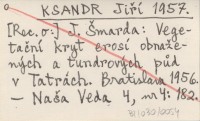 KSANDR Jiří 1957.
[Rec. o:] J. Šmarda: Vege-
tační kryt erosí obnaže-
ných a tundrových půd
v Tatrách. Bratislava 1956.
— Naša Veda 4, nr 4: 182.